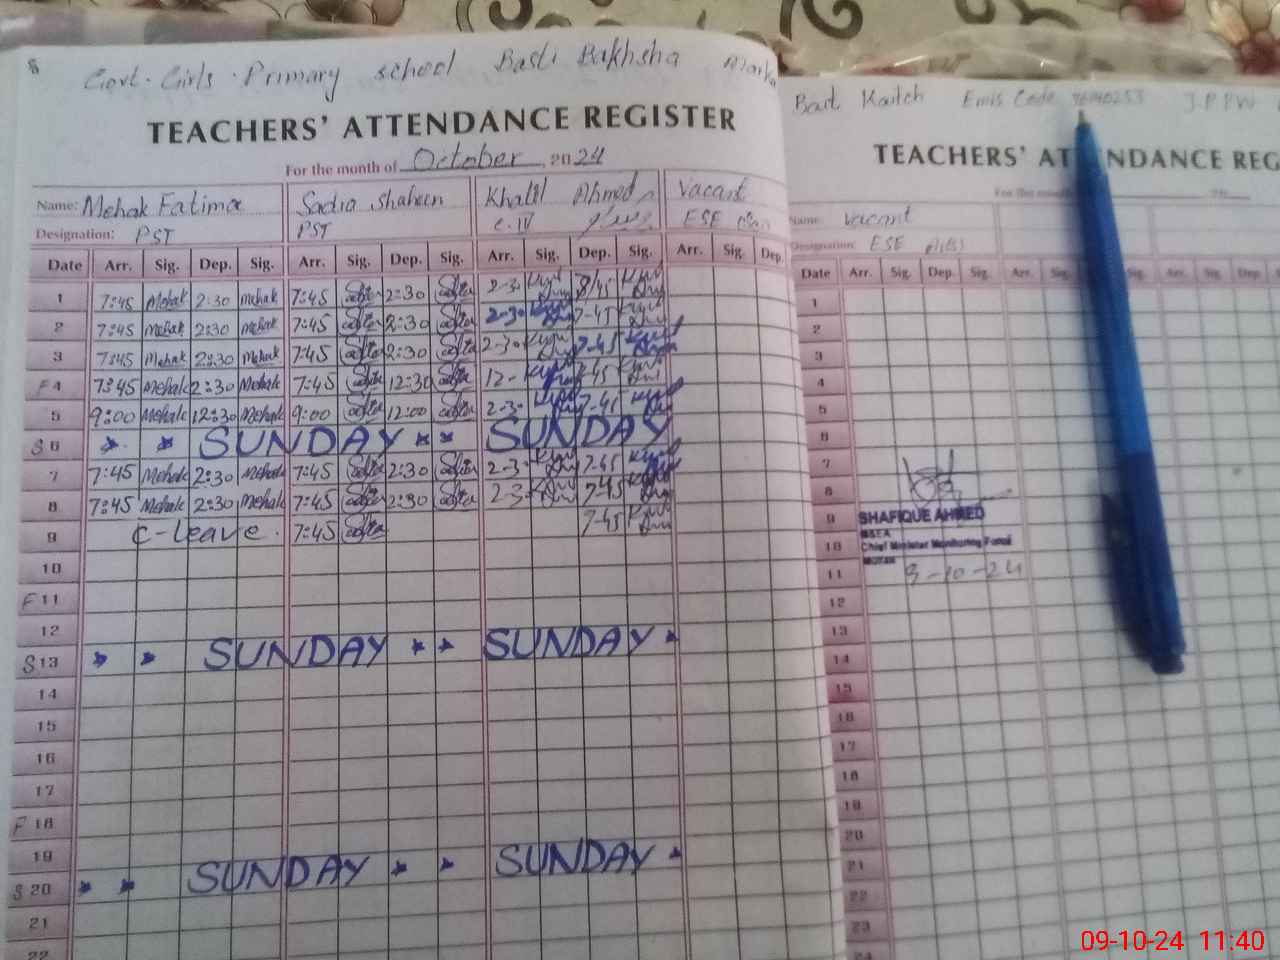 8
Govt. Girls. Primary school Basti Bakhsha
TEACHERS' ATTENDANCE REGISTER
For the month of October 2024
Name: Mehak Fatima Sadia Shaheen Khalil Ahmed Vacant
Designation: PST PST C.IV ESE
Date Arr. Sig. Dep. Sig. Arr. Sig. Dep. Sig. Arr. Sig. Dep. Sig. Arr. Sig. Dep.
1 7:45 Mehak 2:30 Mehak 7:45 2:30 2-30
2 7:45 Mehak 2:30 Mehak 7:45 2:30 2-30 7-45
3 7:45 Mehak 2:30 Mehak 7:45 2:30 2-30 7-45
F 4 7:45 Mehak 2:30 Mehak 7:45 12:30 12- 7-45
5 9:00 Mehak 12:30 Mehak 9:00 12:00 2-30 7-45
S 6 SUNDAY SUNDAY
7 7:45 Mehak 2:30 Mehak 7:45 2:30 2-3 7-45
8 7:45 Mehak 2:30 Mehak 7:45 2:30 2-3 7-45
9 C-leave. 7:45 7-45
10
F 11
12
S 13 SUNDAY SUNDAY
14
15
16
17
F 18
19
S 20 SUNDAY SUNDAY
21
22
Bait Kaitch Emis Code J.P.P.W
TEACHERS' ATTENDANCE REG
For the month
Name: Vacant
Designation: ESE
Date Arr. Sig. Dep. Sig. Arr. Sig. Dep. Sig. Arr. Sig. Dep.
1
2
3
4
5
6
7
8
9
SHAFIQUE AHMED
MSEA
10
Chief Minister Monitoring Force
11
9-10-24
12
13
14
15
16
17
18
19
20
21
22
23
09-10-24 11:40